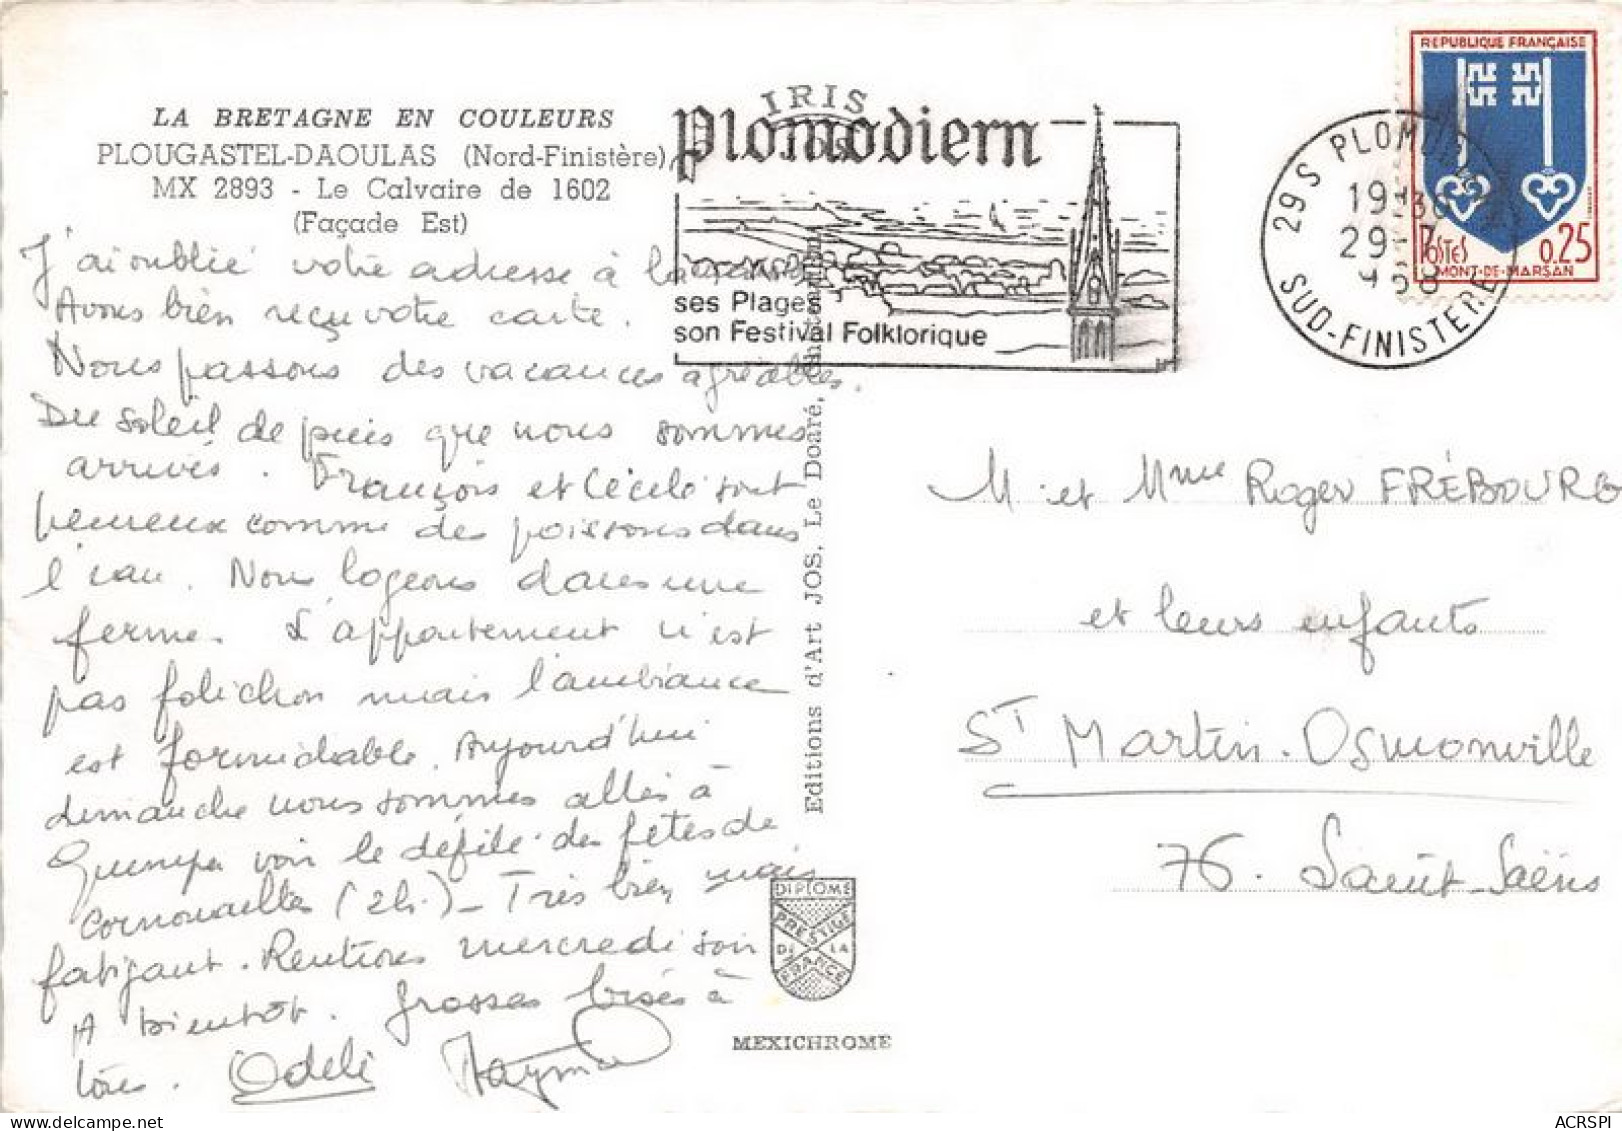 LA BRETAGNE EN COULEURS
PLOUGASTEL-DAOULAS (Nord-Finistère)
MX 2893 - Le Calvaire de 1602
(Façade Est)
J'ai oublié votre adresse à la
Avons bien reçu votre carte.
Nous passons des vacances agréables.
Du soleil depuis que nous sommes
arrivés. François et Cécile sont
heureux comme des poissons dans
l'eau. Nous logeons dans une
ferme. L'appartement n'est
pas folichon mais l'ambiance
est formidable. Aujourd'hui
dimanche nous sommes allés à
Quimper voir le défilé des fêtes de
Cornouailles (2h.) - Très bien mais
fatigant. Rentrons mercredi soir
A bientôt. Grosses bises à
tous. Odile Raymond
IRIS
Plomodiern
ses Plages
son Festival Folklorique
Editions d'Art JOS, Le Doaré, Châteaulin
DIPLOME
PRESTIGE
DE LA
FRANCE
MEXICHROME
REPUBLIQUE FRANÇAISE
POSTES 0,25
MONT-DE-MARSAN
29S PLOMODIERN
19H30
29-7
1968
SUD-FINISTERE
M et Mme Roger FRÉBOURG
et leurs enfants
ST Martin-Osmonville
76. Saint-Saëns
ACRSPI